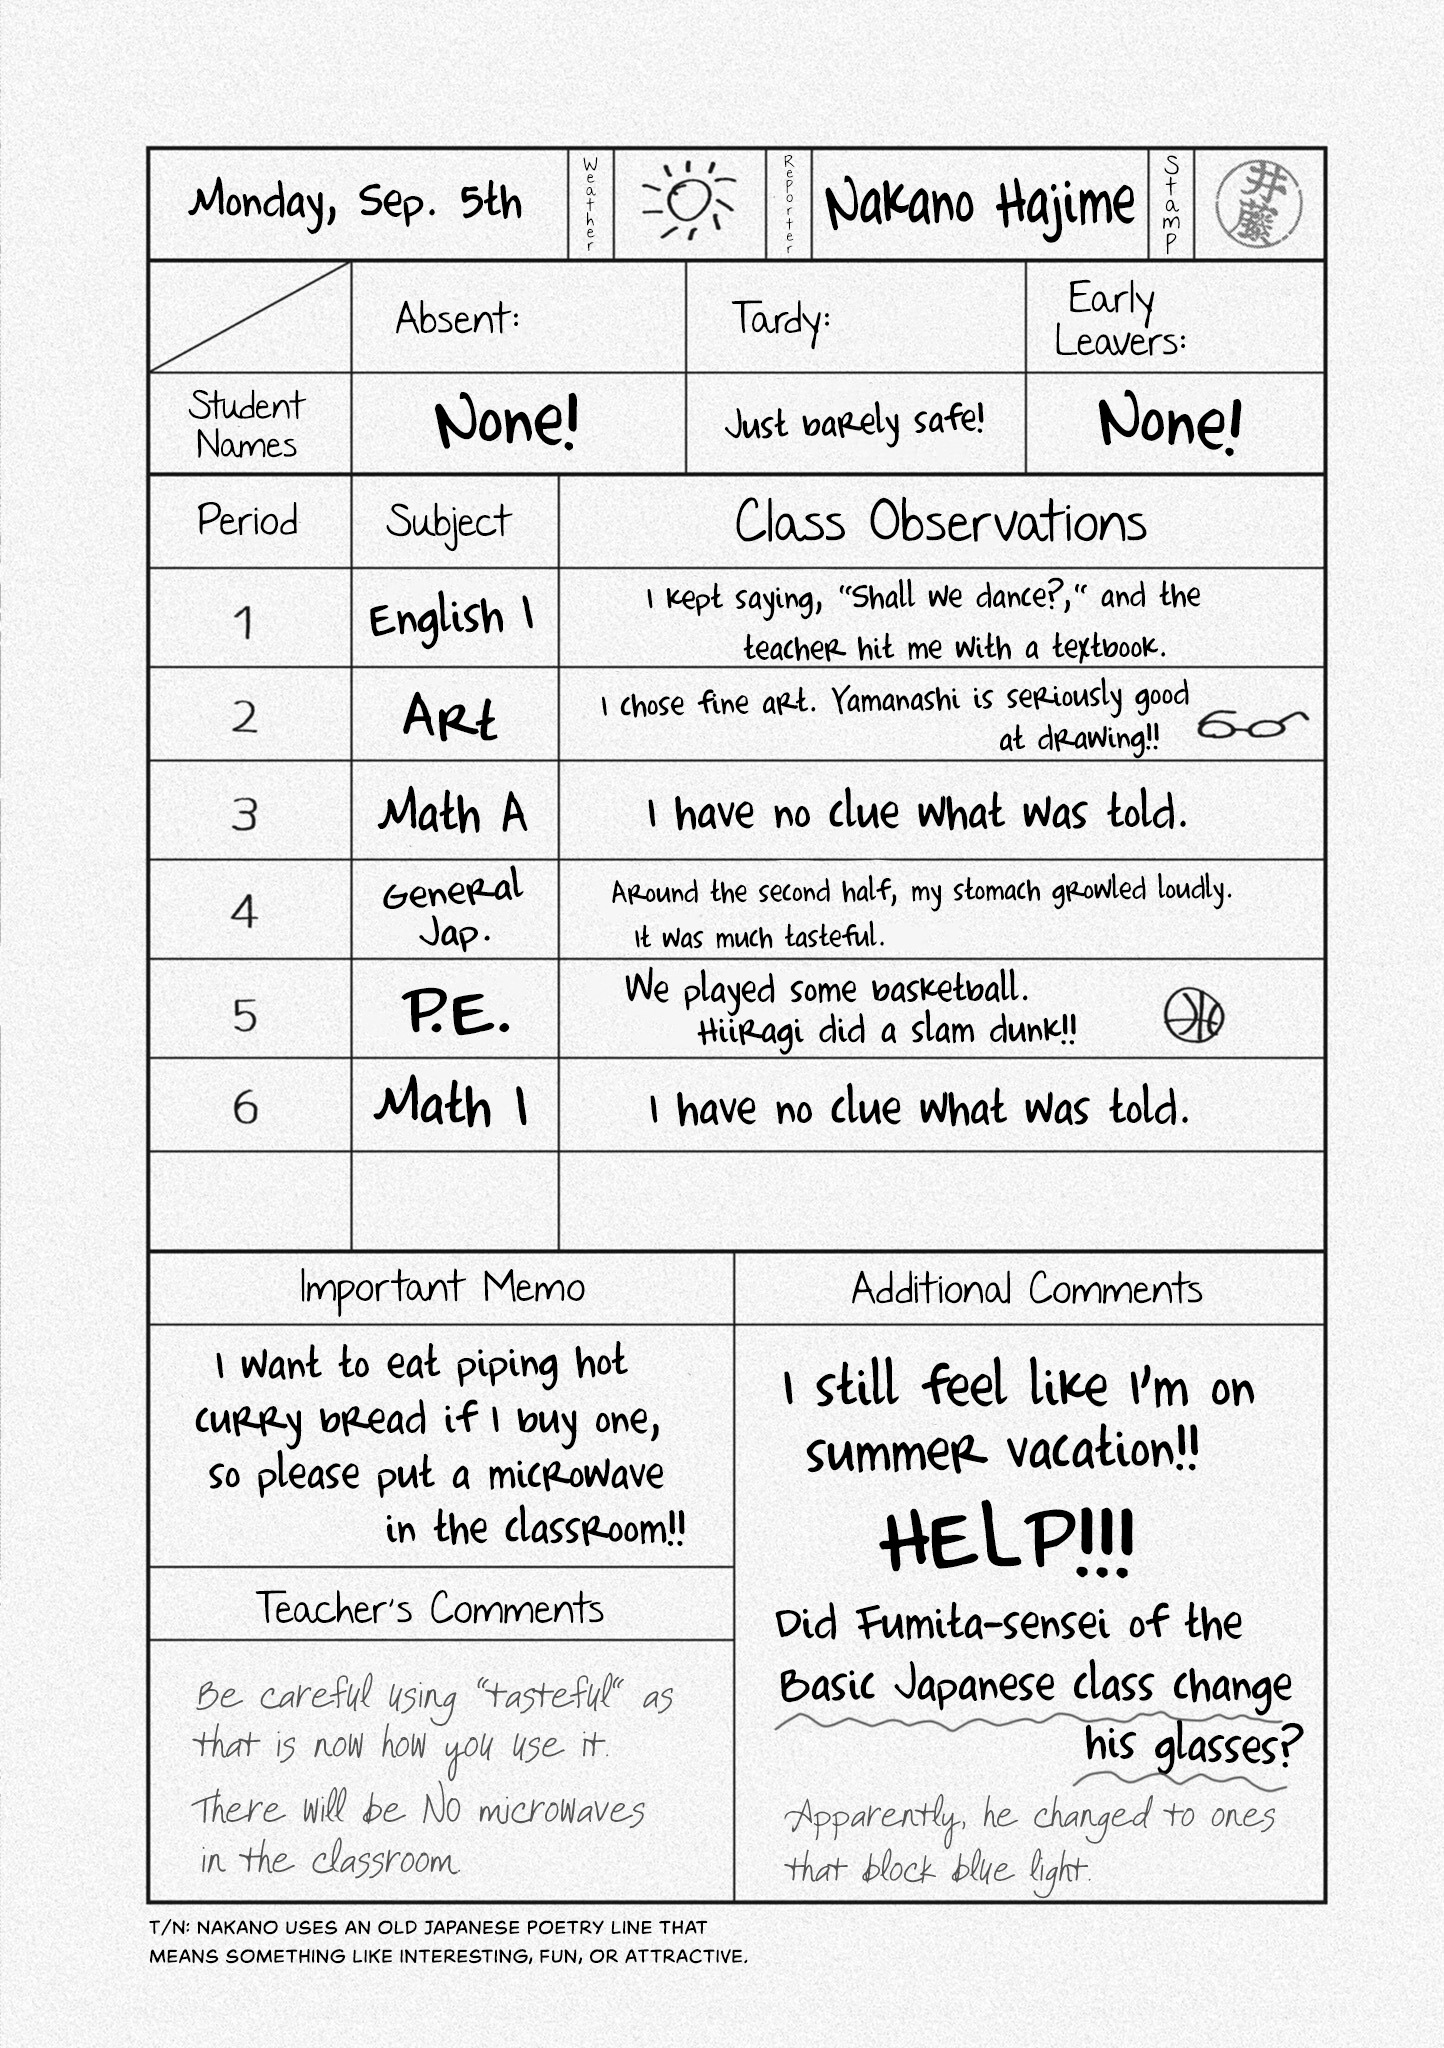 Monday, Sep. 5th
Weather
Reporter
Nakano Hajime
Stamp
井藤
Absent:
Tardy:
Early
Leavers:
Student
Names
None!
Just barely safe!
None!
Period
Subject
Class Observations
1
English 1
I kept saying, “Shall we dance?,“ and the
teacher hit me with a textbook.
2
Art
I chose fine art. Yamanashi is seriously good
at drawing!!
3
Math A
I have no clue what was told.
4
General
Jap.
Around the second half, my stomach growled loudly.
It was much tasteful.
5
P.E.
We played some basketball.
Hiiragi did a slam dunk!!
6
Math 1
I have no clue what was told.
Important Memo
I want to eat piping hot
curry bread if I buy one,
so please put a microwave
in the classroom!!
Teacher's Comments
Be careful using “tasteful“ as
that is now how you use it.
There will be NO microwaves
in the classroom.
Additional Comments
I still feel like I'm on
summer vacation!!
HELP!!!
Did Fumita-sensei of the
Basic Japanese class change
his glasses?
Apparently, he changed to ones
that block blue light.
T/N: NAKANO USES AN OLD JAPANESE POETRY LINE THAT
MEANS SOMETHING LIKE INTERESTING, FUN, OR ATTRACTIVE.